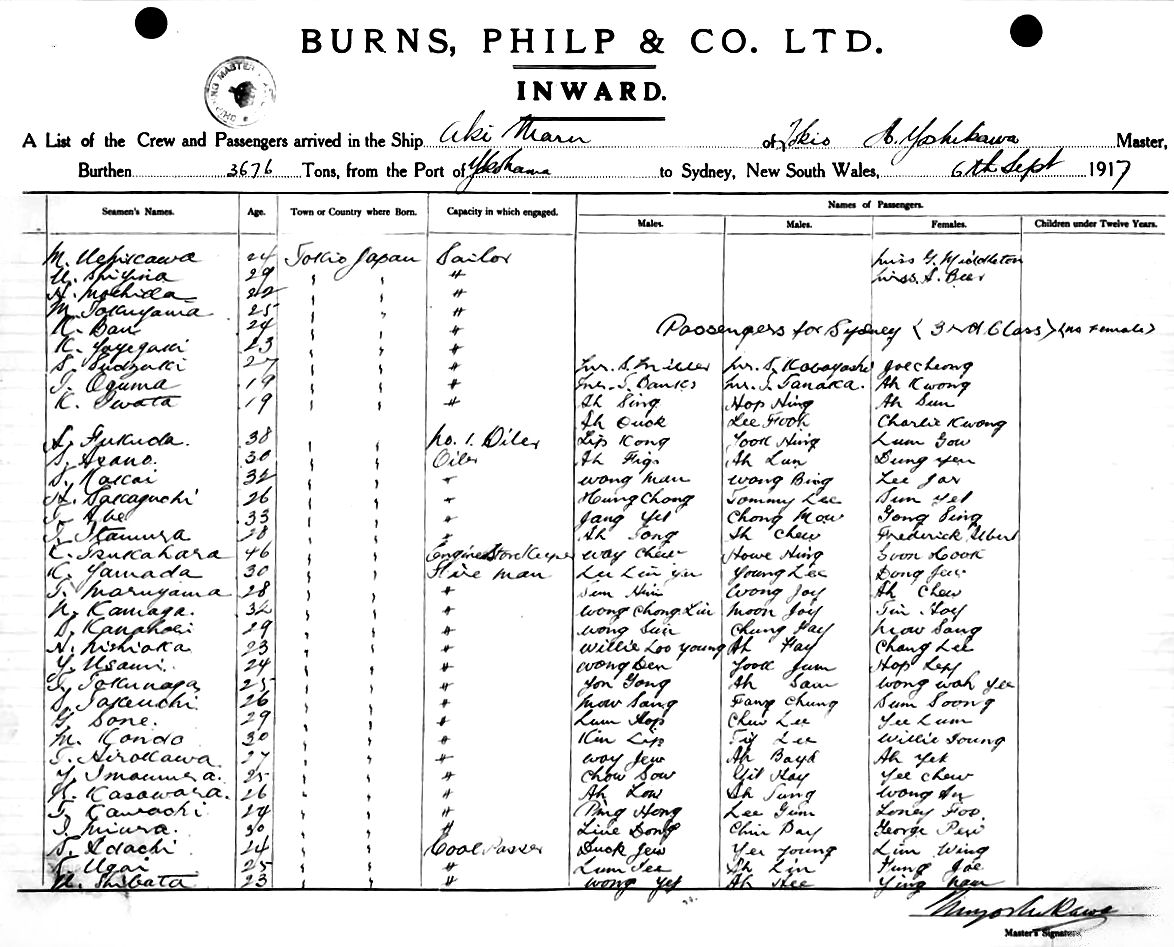 BURNS, PHILP & CO. LTD.
INWARD.
A List of the Crew and Passengers arrived in the Ship Aki Maru of Tokio A. Yoshikawa Master,
Burthen 3676 Tons, from the Port of Yokohama to Sydney, New South Wales, 6th Sept 1917
Names of Passengers.
Seamen's Names. Age. Town or Country where Born. Capacity in which engaged. Males. Males. Females. Children under Twelve Years.
M. Uchikawa 24 Tokio Japan Sailor Miss G. Middleton
29 " " " Miss. S. Beer
H. Mochida 22 " " "
M. Tokuyama 25 " " "
K. Ban 24 " " " Passengers for Sydney (3rd Class) (no Female)
K. 23 " " "
S. Sudzuki 27 " " " Mr. S. Miller Mr. S. Kobayashi Joe cheong
T. Oguma 19 " " " Mr. J. Banks Mr. I. Tanaka. Ah Kwong
K. Iwata 19 " " " Ah Sing Hop Hing Ah Sun
Ah Ouck Lee Fook Charlie Kwong
S. Fukuda. 38 " " No. 1. Oiler Lip Kong Yook Hing Lum Gow
S. Asano. 30 " " Oiler Ah Figs Ah Lun Dung yen
S. Nakai 32 " " " Wong Man Wong Bing Lee Jar
H. Sakaguchi 26 " " " Hung Chong Tommy Lee Sun Yet
T. Abe 33 " " " Jang Yet Chong Mow Gong Sing
T. Itamura 28 " " " Ah Tong Ah Chew Frederick Albert
K. Tsukahara 46 " " Engine Storekeeper Way Chew Howe Hing Goon Cook
K. Yamada 30 " " Fire man Lee Lin Yu Young Lee Dong Jew
T. Maruyama 28 " " " Sun Him Wong Joy Ah Chew
N. Kamaga. 32 " " " Wong Chong Lin Moon Joy Tin Hoy
29 " " " Wong Sun Chung Hay Mow Sang
H. Nishioka 23 " " " Willie Loo Young Ah Hay Chang Lee
Y. Usami. 24 " " " Wong Den Yook Jum Hop
T. Tokunaga 25 " " " Yon Gong Ah Sam Wong Wah Yee
S. Takeuchi 26 " " " Mow Sang Fang Chung Sum Soong
G. Sone. 29 " " " Lum Hop Chew Lee Yee Lum
M. Kondo 30 " " " Kin Lip Lee Willie Goung
T. Hirokawa 27 " " " Way Jew Ah Ah Yet
Y. Imamura. 25 " " " Chow Sow Git Hay Yee Chew
K. Kasawara. 26 " " " Ah Low Ah Tung Wong
T. Kawachi 24 " " " Ping Hong Lee Gum Loney Foo.
T. Miura. 30 " " " Line Dong Chin Day George
S. Adachi 24 " " Coal Passer Duck Jew Yee Young Lim Wing
T. Ugai 25 " " " Lum Tee Ah Lin Fung Joe
N. Shibata 23 " " " Wong Yet Ah Hee Ying
Master's Signature